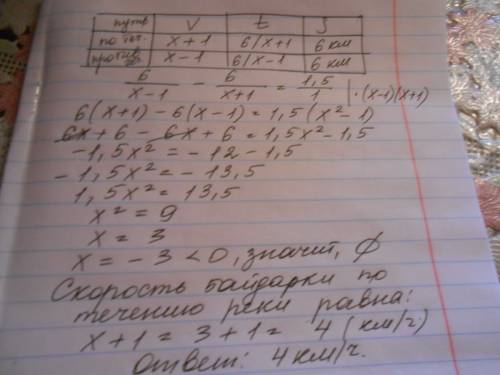 путь V t S
по теч. x+1 6/x+1 6 км
против x-1 6/x-1 6 км
6/(x-1) - 6/(x+1) = 1,5/1 | ·(x-1)(x+1)
6(x+1) - 6(x-1) = 1,5(x²-1)
6x + 6 - 6x + 6 = 1,5x² - 1,5
-1,5x² = -12 - 1,5
-1,5x² = -13,5
1,5x² = 13,5
x² = 9
x = 3
x = -3 < 0, значит, ∅
Скорость байдарки по
течению реки равна:
x+1 = 3+1 = 4 (км/ч)
Ответ: 4 км/ч.